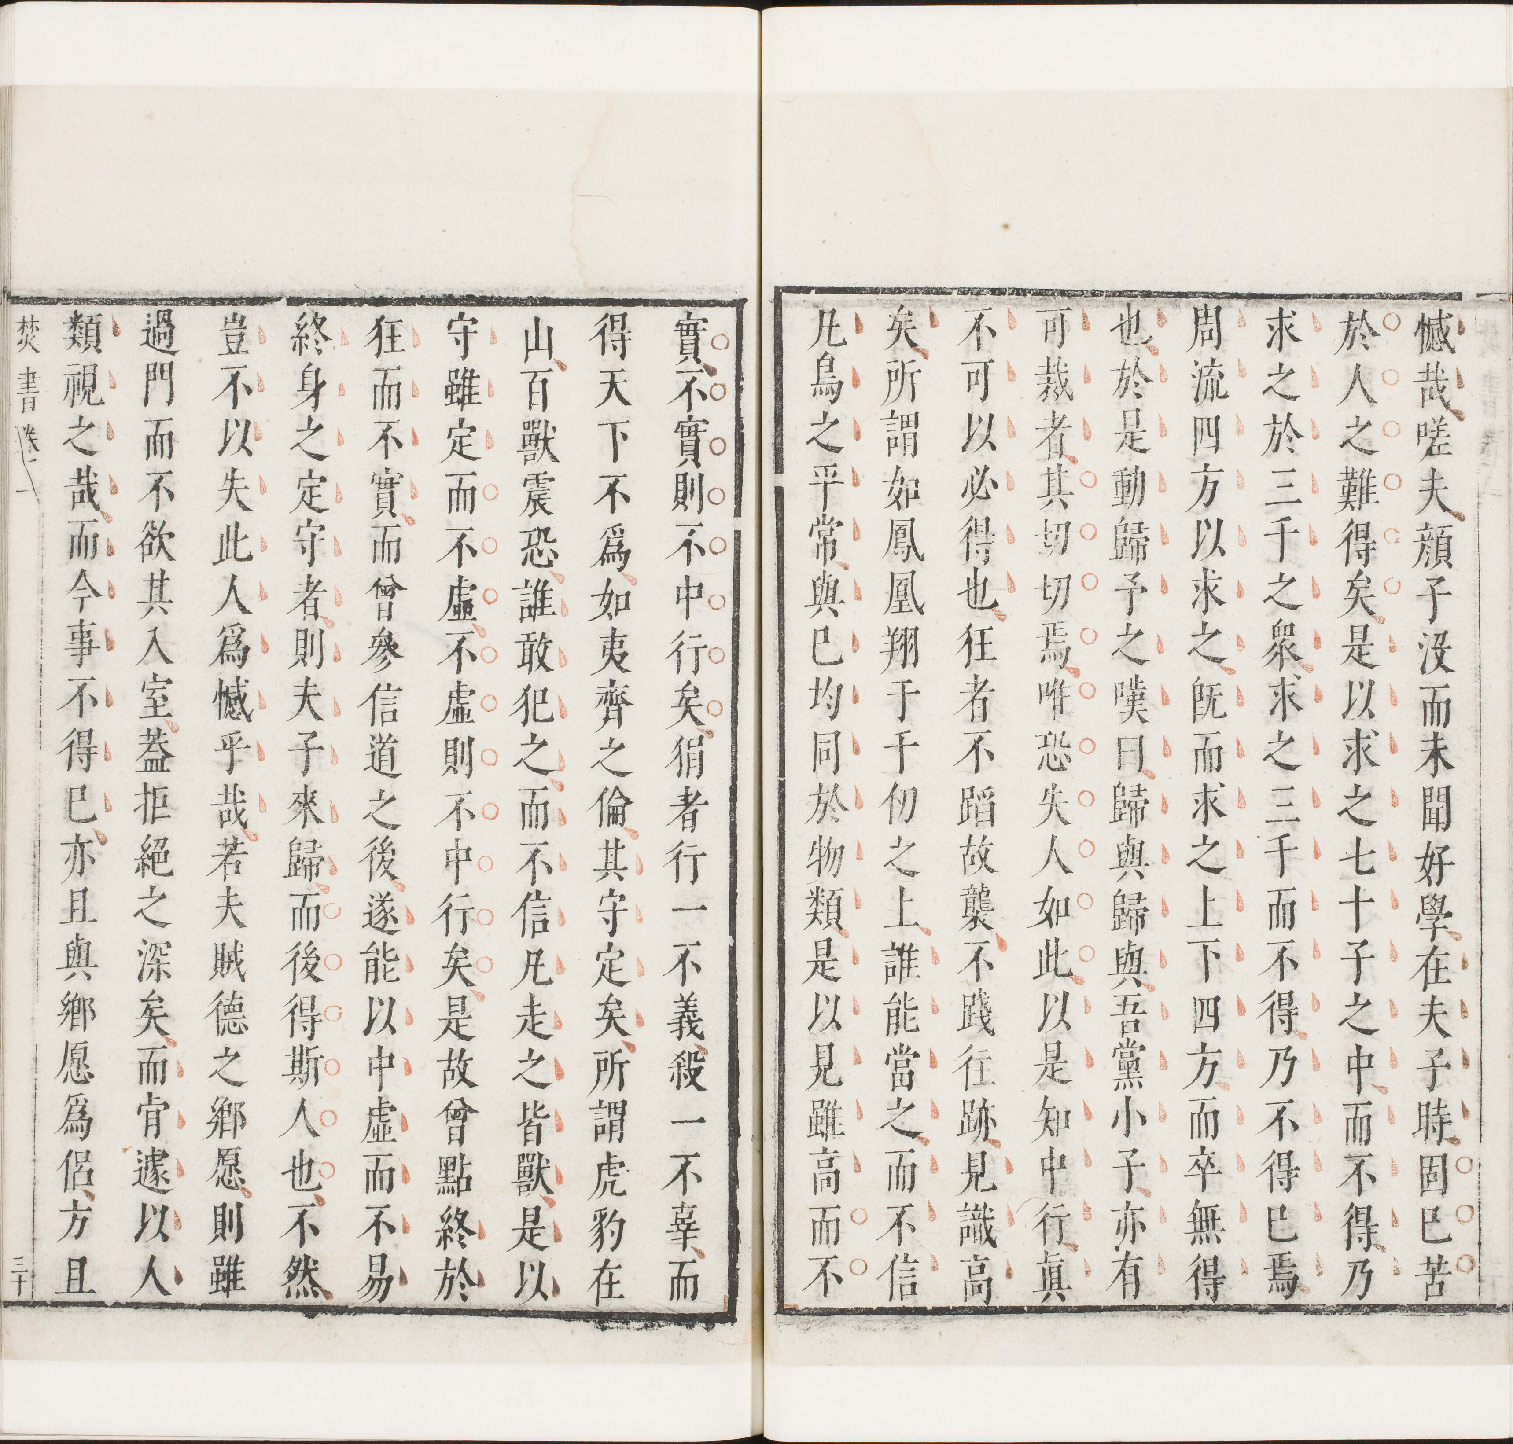 憾哉嗟夫顔子没而未聞好學在夫子時固已苦
於人之難得矣是以求之七十子之中而不得乃
求之於三千之衆求之三千而不得乃不得已焉
周流四方以求之旣而求之上下四方而卒無得
也於是動歸予之嘆曰歸與歸與吾黨小子亦有
可裁者其切切焉唯恐失人如此以是知中行眞
不可以必得也狂者不蹈故襲不踐往跡見識高
矣所謂如鳳凰翔于千仞之上誰能當之而不信
凢鳥之平常與已均同於物類是以見雖高而不
實不實則不中行矣狷者行一不義殺一不辜而
得天下不爲如夷齊之倫其守定矣所謂虎豹在
山百獸震恐誰敢犯之而不信凢走之皆獸是以
守雖定而不虛不虛則不中行矣是故曾點終於
狂而不實而曾參信道之後遂能以中虛而不易
終身之定守者則夫子來歸而後得斯人也不然
豈不以失此人爲憾乎哉若夫賊德之鄉愿則雖
過門而不欲其入室蓋拒絕之深矣而肯遽以人
類視之哉而今事不得已亦且與鄉愿爲侶方且
焚書卷一 三十